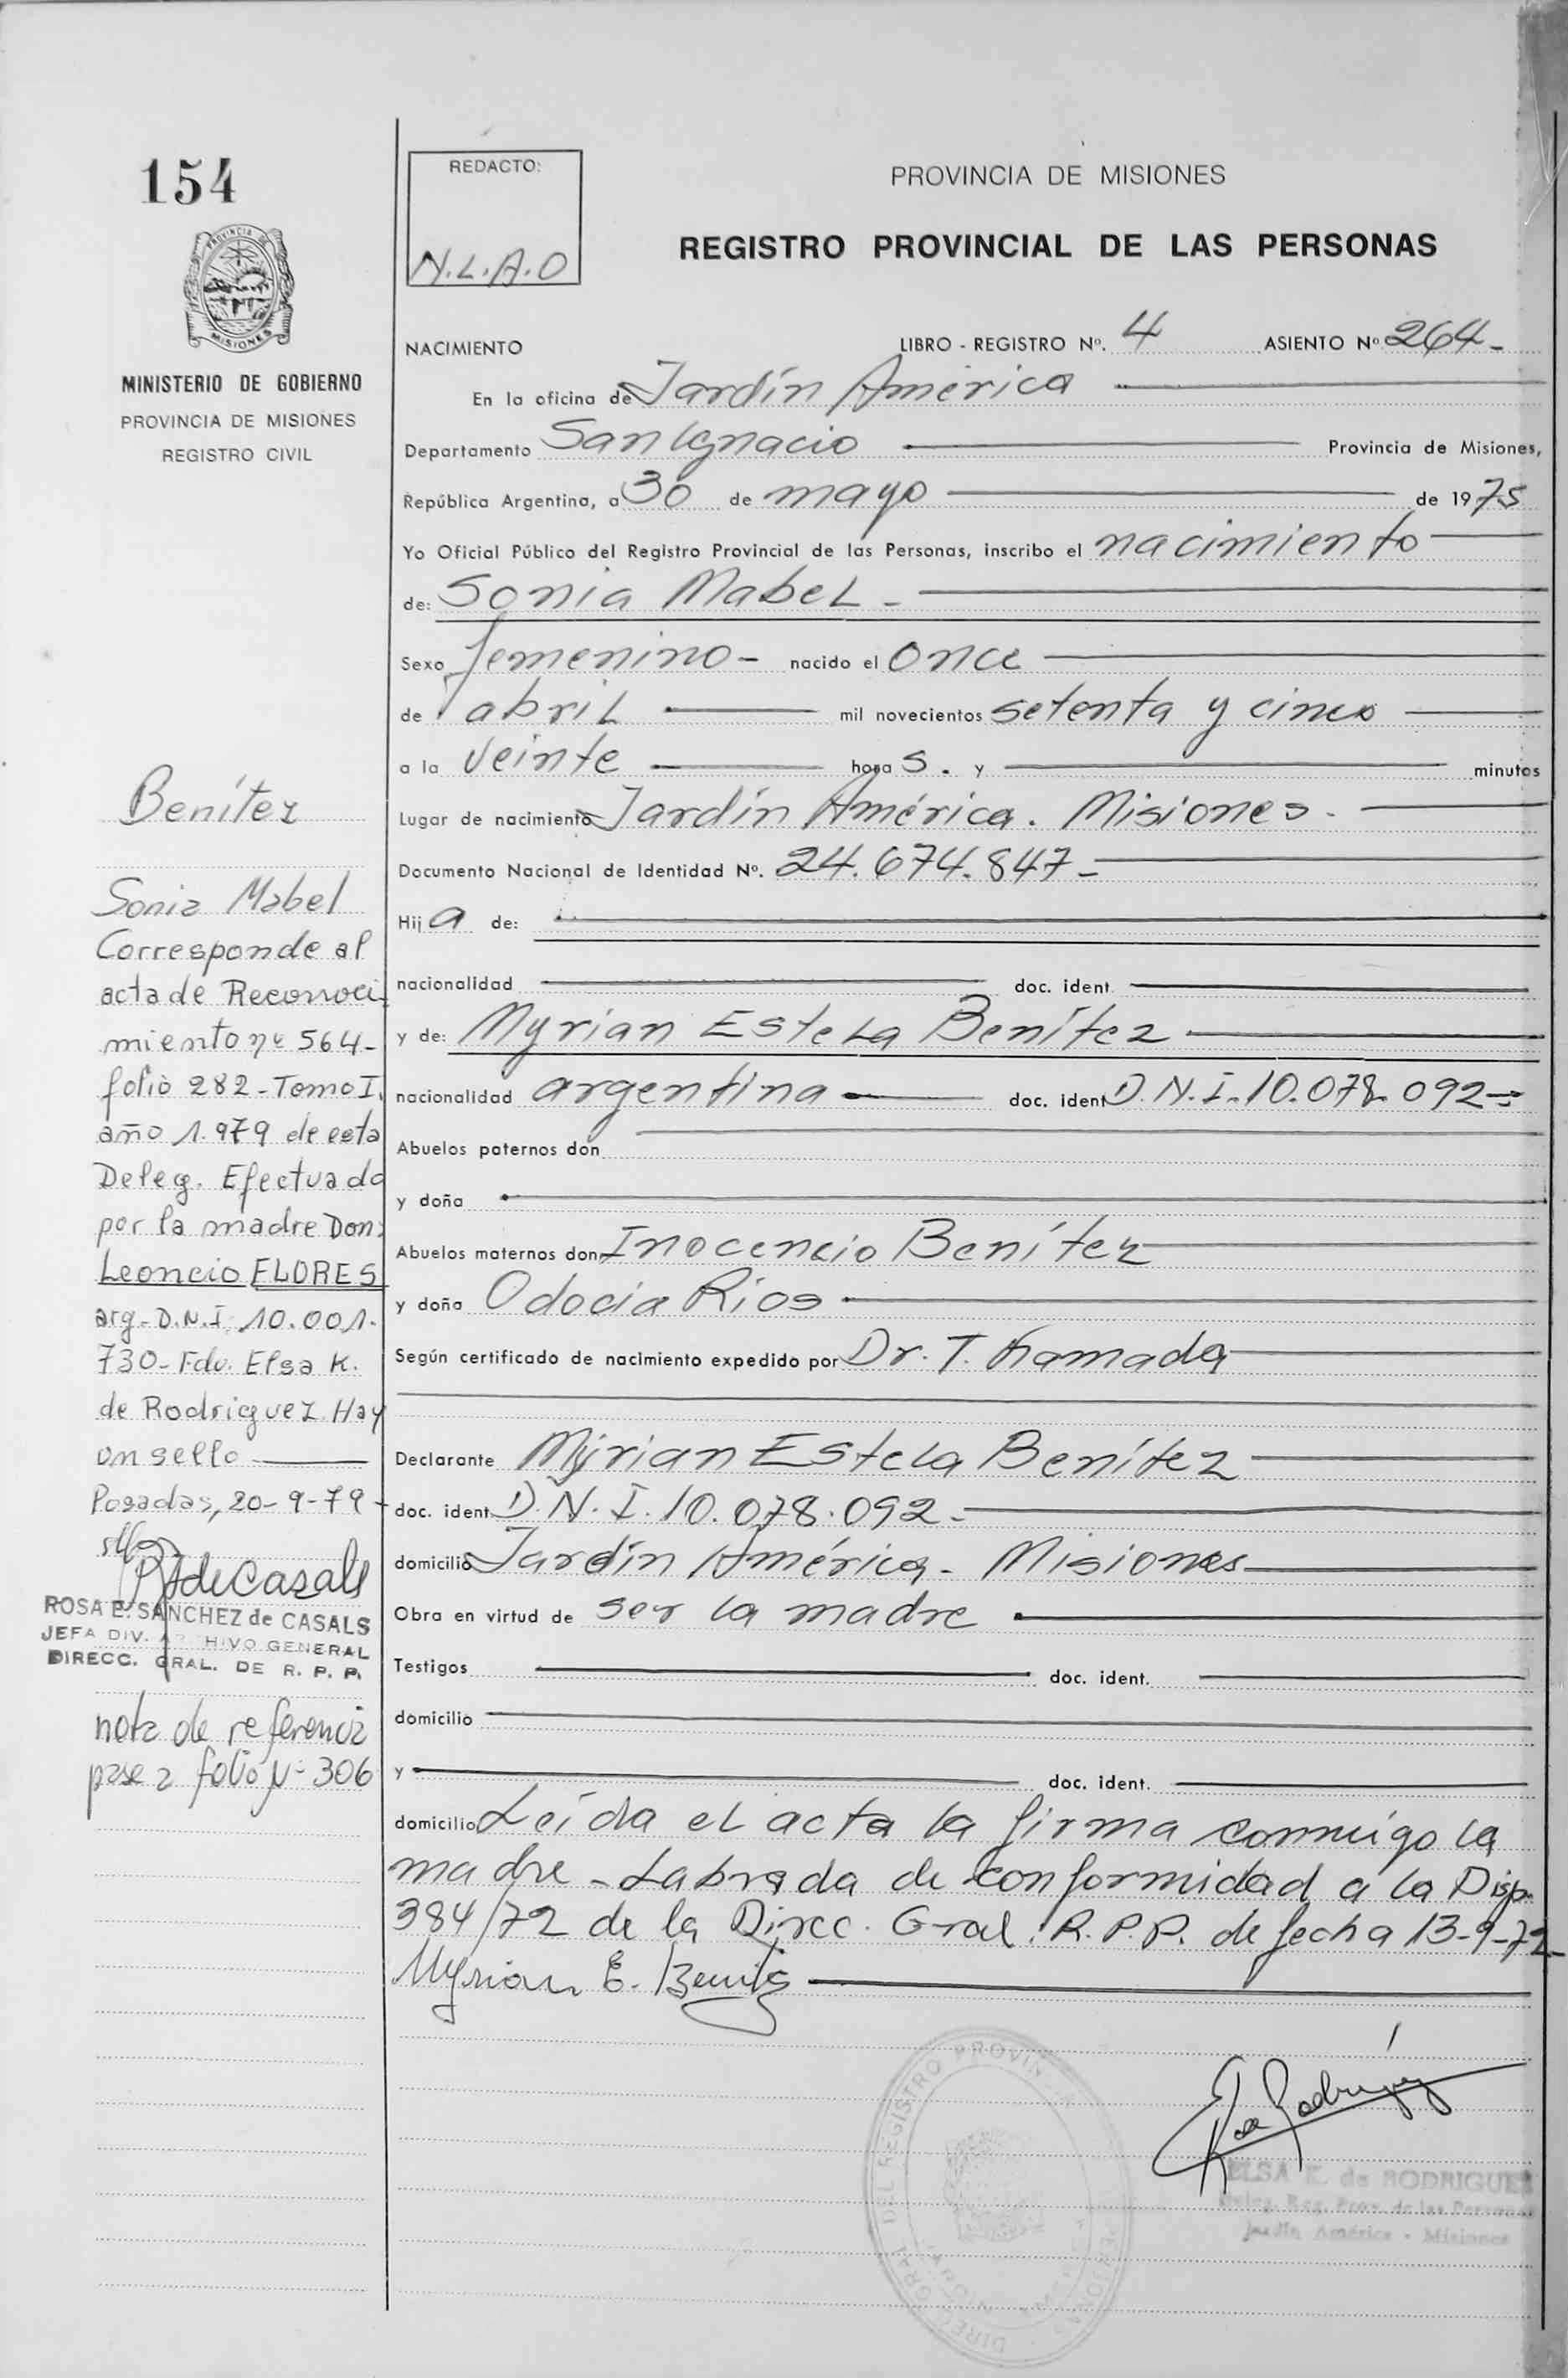 154
PROVINCIA DE
MISIONES
MINISTERIO DE GOBIERNO
PROVINCIA DE MISIONES
REGISTRO CIVIL
Benítez
Sonia Mabel
Corresponde al
acta de Reconoci
miento nº 564-
folio 282-Tomo I.
año 1.979 de esta
Deleg. Efectuado
por la madre Don:
Leoncio FLORES
arg-D.N.I. 10.001.
730-Fdo. Elsa K.
de Rodriguez. Hay
un sello
Posadas, 20-9-79
R S de Casals
ROSA E. SANCHEZ de CASALS
JEFA DIV. ARCHIVO GENERAL
DIRECC. GRAL. DE R. P. P.
nota de referencia
pase a folio Nº 306
REDACTO:
N.L.A.O
PROVINCIA DE MISIONES
REGISTRO PROVINCIAL DE LAS PERSONAS
NACIMIENTO LIBRO - REGISTRO Nº. 4 ASIENTO Nº 264-
En la oficina de Jardín América
Departamento San Ignacio Provincia de Misiones,
República Argentina, a 30 de mayo de 1975
Yo Oficial Público del Registro Provincial de las Personas, inscribo el nacimiento
de: Sonia Mabel -
Sexo femenino- nacido el once
de abril mil novecientos setenta y cinco
a la veinte horas. y minutos
Lugar de nacimiento Jardín América. Misiones.
Documento Nacional de Identidad Nº. 24.674.847-
Hija de:
nacionalidad doc. ident.
y de: Myrian Estela Benítez
nacionalidad argentina doc. ident D.N.I. 10.078.092-
Abuelos paternos don
y doña
Abuelos maternos don Inocencio Benítez
y doña Odocia Rios
Según certificado de nacimiento expedido por Dr. T. Kamada
Declarante Myrian Estela Benítez
doc. ident. D.N.I. 10.078.092-
domicilio Jardín América- Misiones
Obra en virtud de ser la madre
Testigos doc. ident.
domicilio
y doc. ident.
domicilio Leída el acta la firma conmigo la
madre - Labrada de conformidad a la Disp.
384/72 de la Direc. Gral. R.P.P. de fecha 13-9-72-
Myrian E. Benítez
Elsa Rodriguez
ELSA K. de RODRIGUEZ
Deleg. Reg. Prov. de las Personas
Jardín América - Misiones